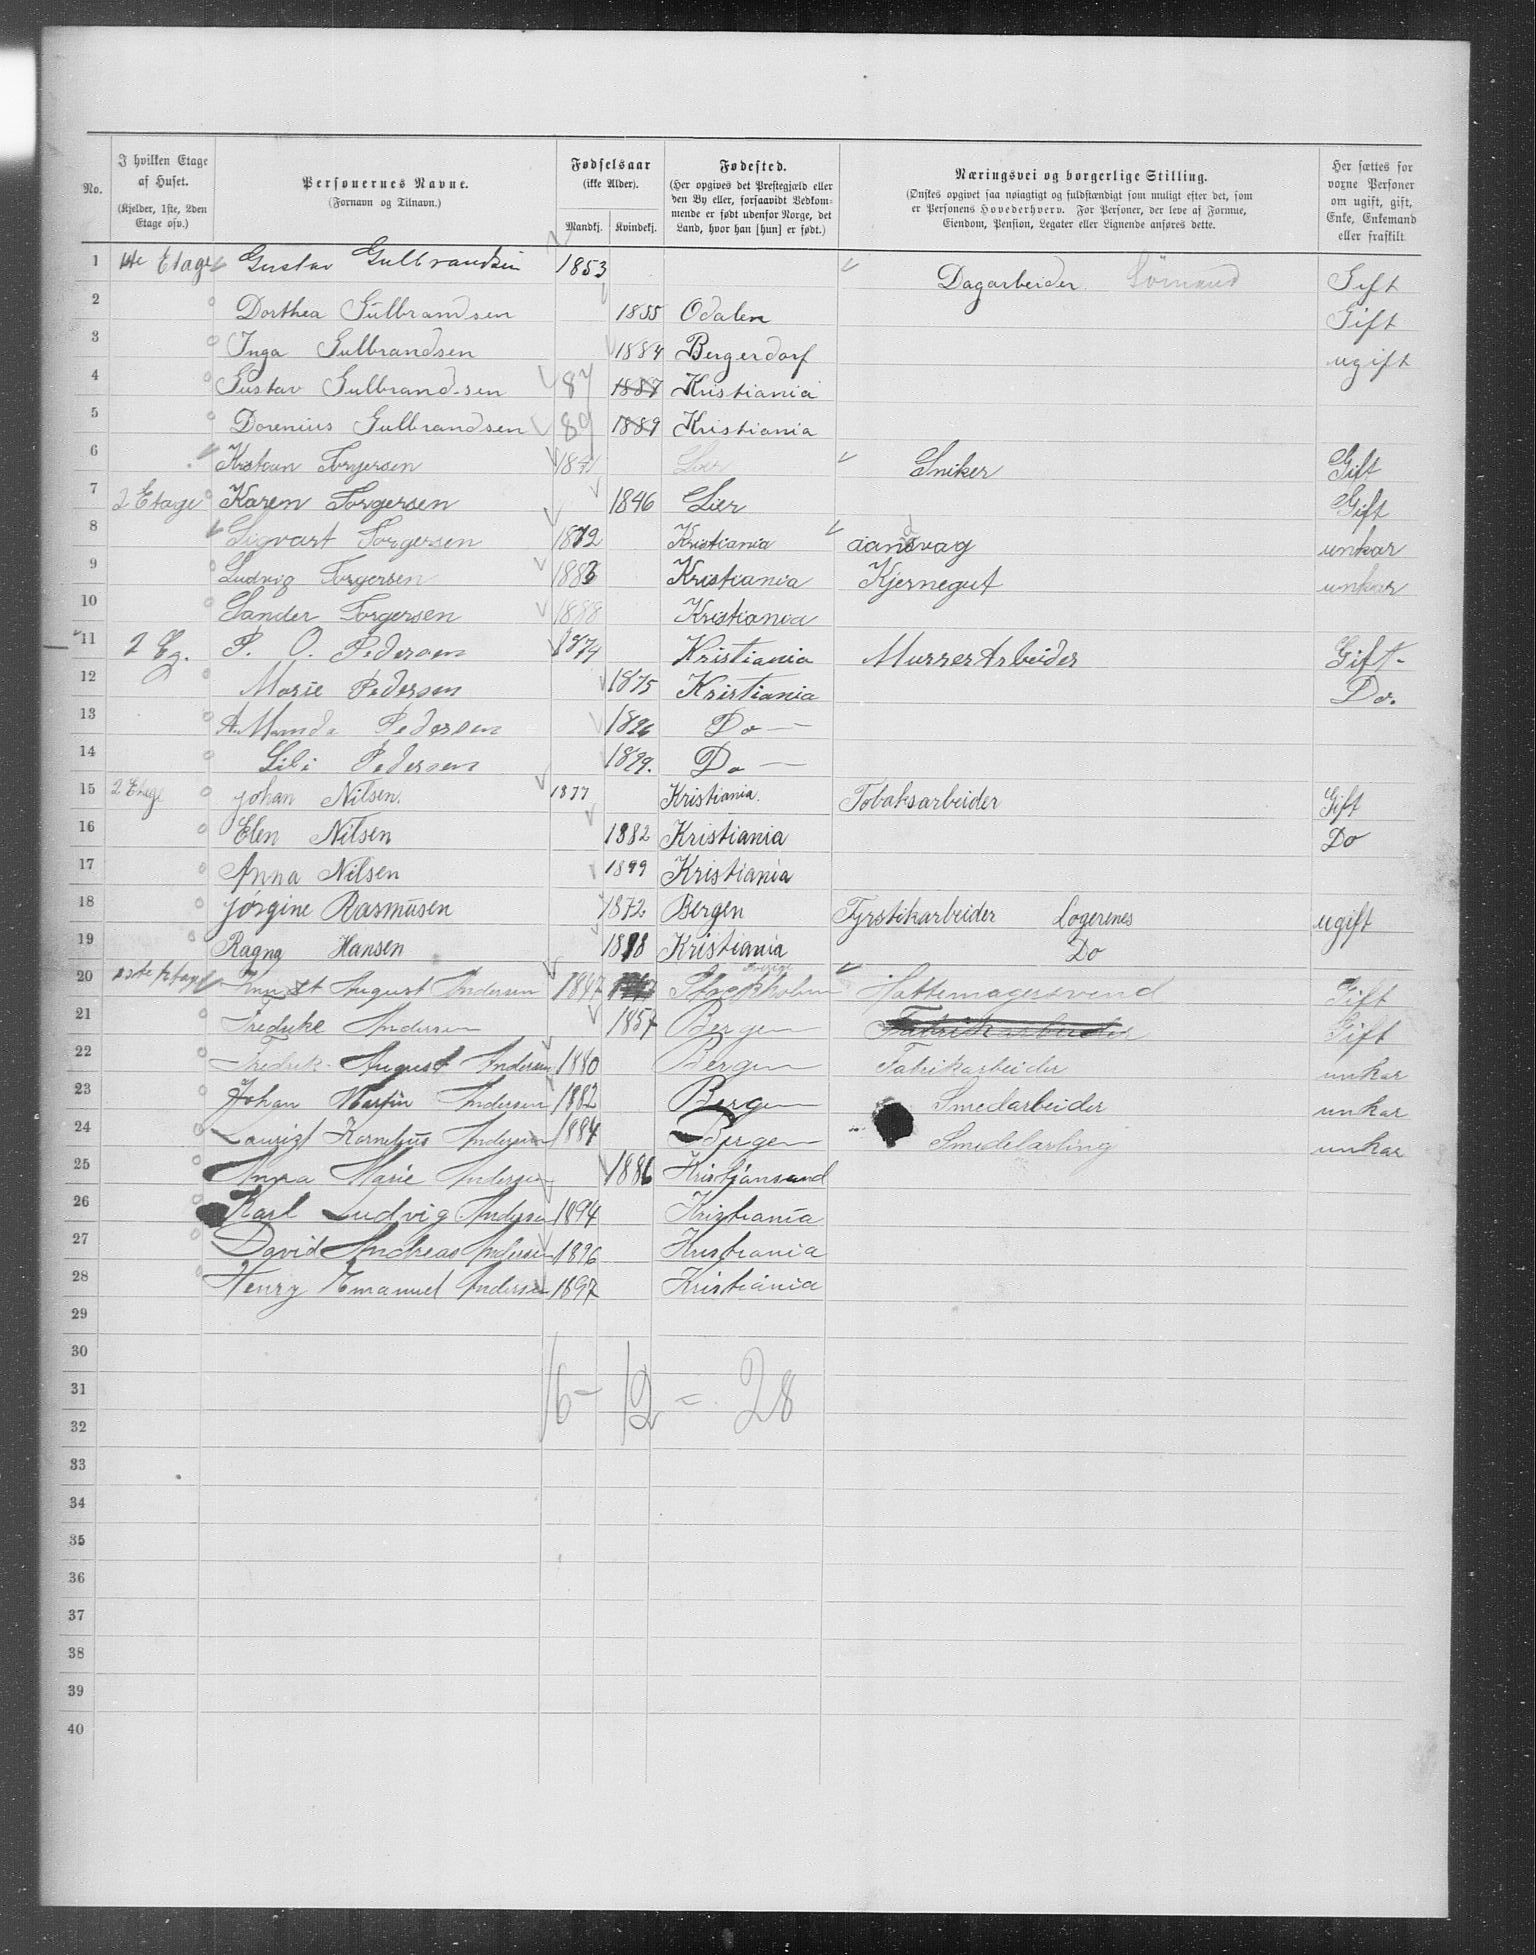 No.
I hvilken Etage af Huset.
(Kjelder, 1ste, 2den Etage osv.)
Personernes Navne.
(Fornavn og Tilnavn.)
Fødselsaar
(ikke Alder).
Mandkj. Kvindekj.
Fødested.
(Her opgives det Prestegjæld eller den By eller, forsaavidt Vedkommende er født udenfor Norge, det Land, hvor han [hun] er født.)
Næringsvei og borgerlige Stilling.
(Ønskes opgivet saa nøiagtigt og fuldstændigt som muligt efter det, som er Personens Hovederhverv. For Personer, der leve af Formue, Eiendom, Pension, Legater eller Lignende anføres dette.
Her sættes for vorne Personer om ugift, gift, Enke, Enkemand eller fraskilt.
1 1ste Etage Gustav Gulbrandsen 1853 Dagarbeider Gift
2 Dorthea Gulbrandsen 1855 Odalen Gift
3 Inga Gulbrandsen 1884 Bergerdorf ugift
4 Gustav Gulbrandsen 87 1887 Kristiania
5 Dorenius Gulbrandsen 89 1889 Kristiania
6 Torgersen Lier Sniker Gift
7 2 Etage Karen Torgersen 1846 Lier Gift
8 Sigvart Torgersen 1872 Kristiania unkar
9 Ludvig Torgersen 1883 Kristiania Kjernegut unkar
10 Sander Torgersen 1888 Kristiania
11 2 Eg. P. O. Pedersen 1874 Kristiania Murrer Arbeider Gift
12 Marie Pedersen 1875 Kristiania Do.
13 A Manda Pedersen 1896 Do —
14 Lili Pedersen 1899. Do —
15 2 Etage Johan Nilsen 1877 Kristiania. Tobaksarbeider Gift
16 Elen Nilsen 1882 Kristiania Do
17 Anna Nilsen 1899 Kristiania
18 Jørgine Rasmusen 1872 Bergen Fyrstikarbeider Logerenes ugift
19 Ragna Hansen 1898 Kristiania Do
20 August Andersen 1847 Stockholm Sverige Hattemagersvend Gift
21 Fredrike Andersen 1857 Bergen Fabrikarbeider Gift
22 Fredrik August Andersen 1880 Bergen Fabrikarbeider unkar
23 Johan Martin Andersen 1882 Bergen Smedarbeider unkar
24 Lauritz Kornelius Andersen 1884 Bergen Smedelærling unkar
25 Anna Marie Andersen 1886 Kristjansand
26 Karl Ludvig Andersen 1894 Kristiania
27 David Andreas Andersen 1896 Kristiania
28 Henry Emanuel Andersen 1897 Kristiania
29
30
31 16 - 12 = 28
32
33
34
35
36
37
38
39
40